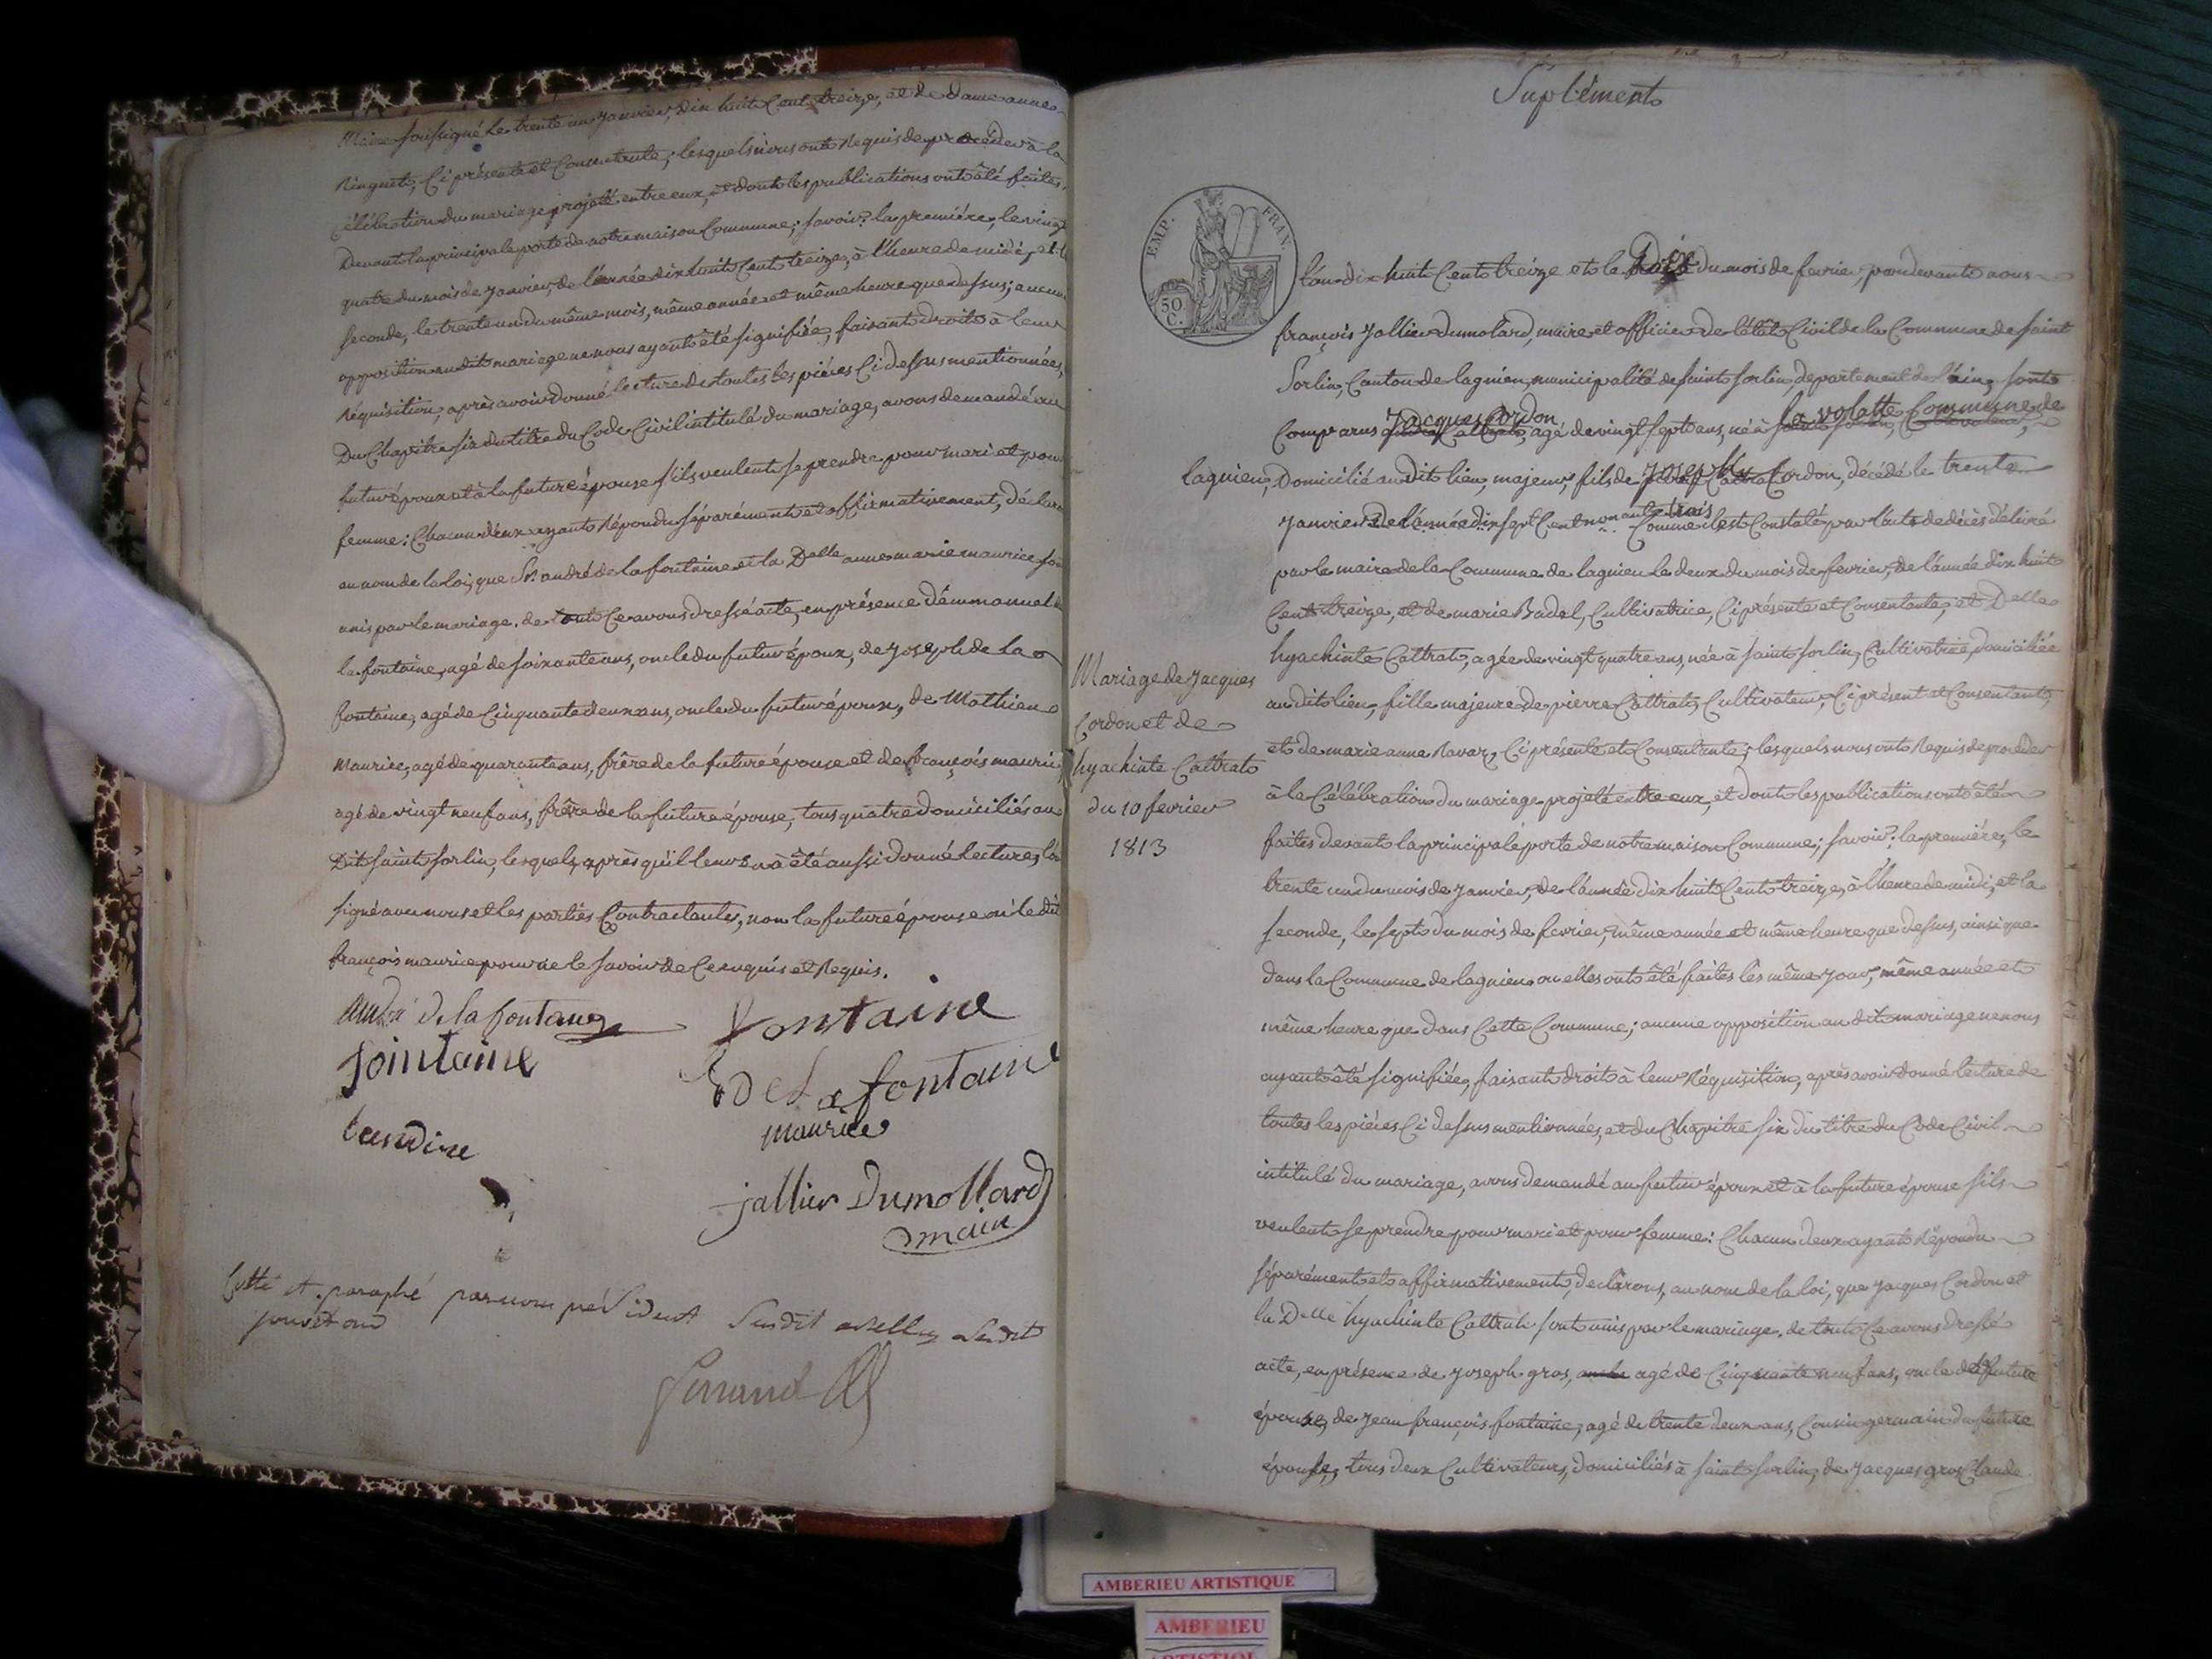 Maire soussigné le trente un janvier, dix huit cent treize, et de dame anne
Ringuet, ci présente et consentante; lesquels nous ont requis de procéder à la
célébration du mariage projetté entre eux, et dont les publications ont été faites
Devant la principale porte de notre maison commune; savoir: la première, le vingt
quatre du mois de janvier, de l'année dix huit cent treize, à l'heure de midi, et la
seconde, le trente un du même mois, même année et même heure que dessus; aucune
opposition au dit mariage ne nous ayant été signifiée, faisant droit à leur
réquisition, après avoir donné lecture de toutes les pièces ci dessus mentionnées,
Du Chapitre six du titre du Code Civil intitulé du mariage, avons demandé au
futur époux et à la future épouse s'ils veulent se prendre pour mari et pour
femme: Chacun d'eux ayant répondu séparément et affirmativement, déclare
au nom de la loi, que Sr. andré de la fontaine et la Delle anne marie maurice son
unis par le mariage. de tout ce avons dressé acte, en présence d'emmanuel
la fontaine, agé de soixante ans, oncle du futur époux, de joseph de la
fontaine, agé de cinquante deux ans, oncle du futur époux, de Mathieu
maurice, agé de quarante ans, frère de la future épouse et de françois maurice,
agé de vingt neuf ans, frère de la future épouse, tous quatre domiciliés au
Dit saint sorlin, lesquels, après qu'il leur en a été aussi donné lecture, l'on
signé avec nous et les parties Contractantes, non la future épouse ni le dit
françois maurice pour ne le savoir de ce enquis et requis.
andré de la fontaine
Fontaine
fointaine
De La fontaine
maurice
jallier Dumollard
maire
Cotté et paraphé par nous président susdit
Suplément
EMP. FRAN.
50 C.
L'an dix huit cent treize et le dix du mois de fevrier, par devant nous
françois jallier dumolard, maire et officier de l'état civil de la Commune de saint
Sorlin, Canton de lagnieu, municipalité de saint sorlin, departement de l'ain, sont
Comparus Jacques Cordon, agé de vingt sept ans, né à la volatte Commune de
lagnieu, Domicilié au dit lieu, majeur, fils de joseph Cordon, décédé le trente
janvier de l'année dix sept cent nonante trois Comme il est Constaté par l'acte de décès délivré
par le maire de la Commune de lagnieu le deux du mois de fevrier, de l'année dix huit
Cent treize, et de marie Badel, Cultivatrice, Ci présente et Consentante, et Delle
hyachinte Cattrat, agée de vingt quatre ans, née à saint sorlin, Cultivatrice, domiciliée
au dit lieu, fille majeure de pierre Cattrat, Cultivateur, Ci présent et Consentant,
et de marie anne navar, Ci présente et Consentante; lesquels nous ont requis de procéder
à la Célébration du mariage projeté entre eux, et dont les publications ont été
faites devant la principale porte de notre maison Commune; savoir: la première, le
trente un du mois de janvier, de l'année dix huit Cent treize, à l'heure de midi, et la
seconde, le sept du mois de fevrier, même année et même heure que dessus, ainsi que
dans la Commune de lagnieu ou elles ont été faites les même jour, même année et
même heure que dans Cette Commune; aucune opposition au dit mariage ne nous
ayant été signifiée, faisant droit à leur réquisition, après avoir donné lecture de
toutes les pièces Ci dessus mentionnées, et du Chapitre six du titre du Code Civil
intitulé du mariage, avons demandé au futur époux et à la future épouse s'ils
veulent se prendre pour mari et pour femme: Chacun deux ayant répondu
séparément et affirmativement, declârons, au nom de la loi, que jacques Cordon et
la Delle hyachinte Cattrat sont unis par le mariage. de tout ce avons dressé
acte, en présence de joseph gros, agé de Cinquante neuf ans, oncle de la future
épouse, de jean françois fontaine, agé de trente deux ans, Cousin germain du future
épouse, tous deux Cultivateurs, domiciliés à saint sorlin, de jacques gros Claude
Mariage de jacques
Cordon et de
hyachinte Cattrat
du 10 fevrier
1813
AMBERIEU ARTISTIQUE
AMBERIEU
ARTISTIQUE